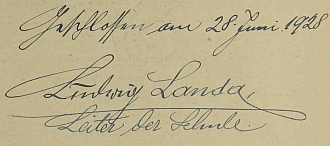 Geschlossen am 28. Juni 1928
Ludwig Landa,
Leiter der Schule.